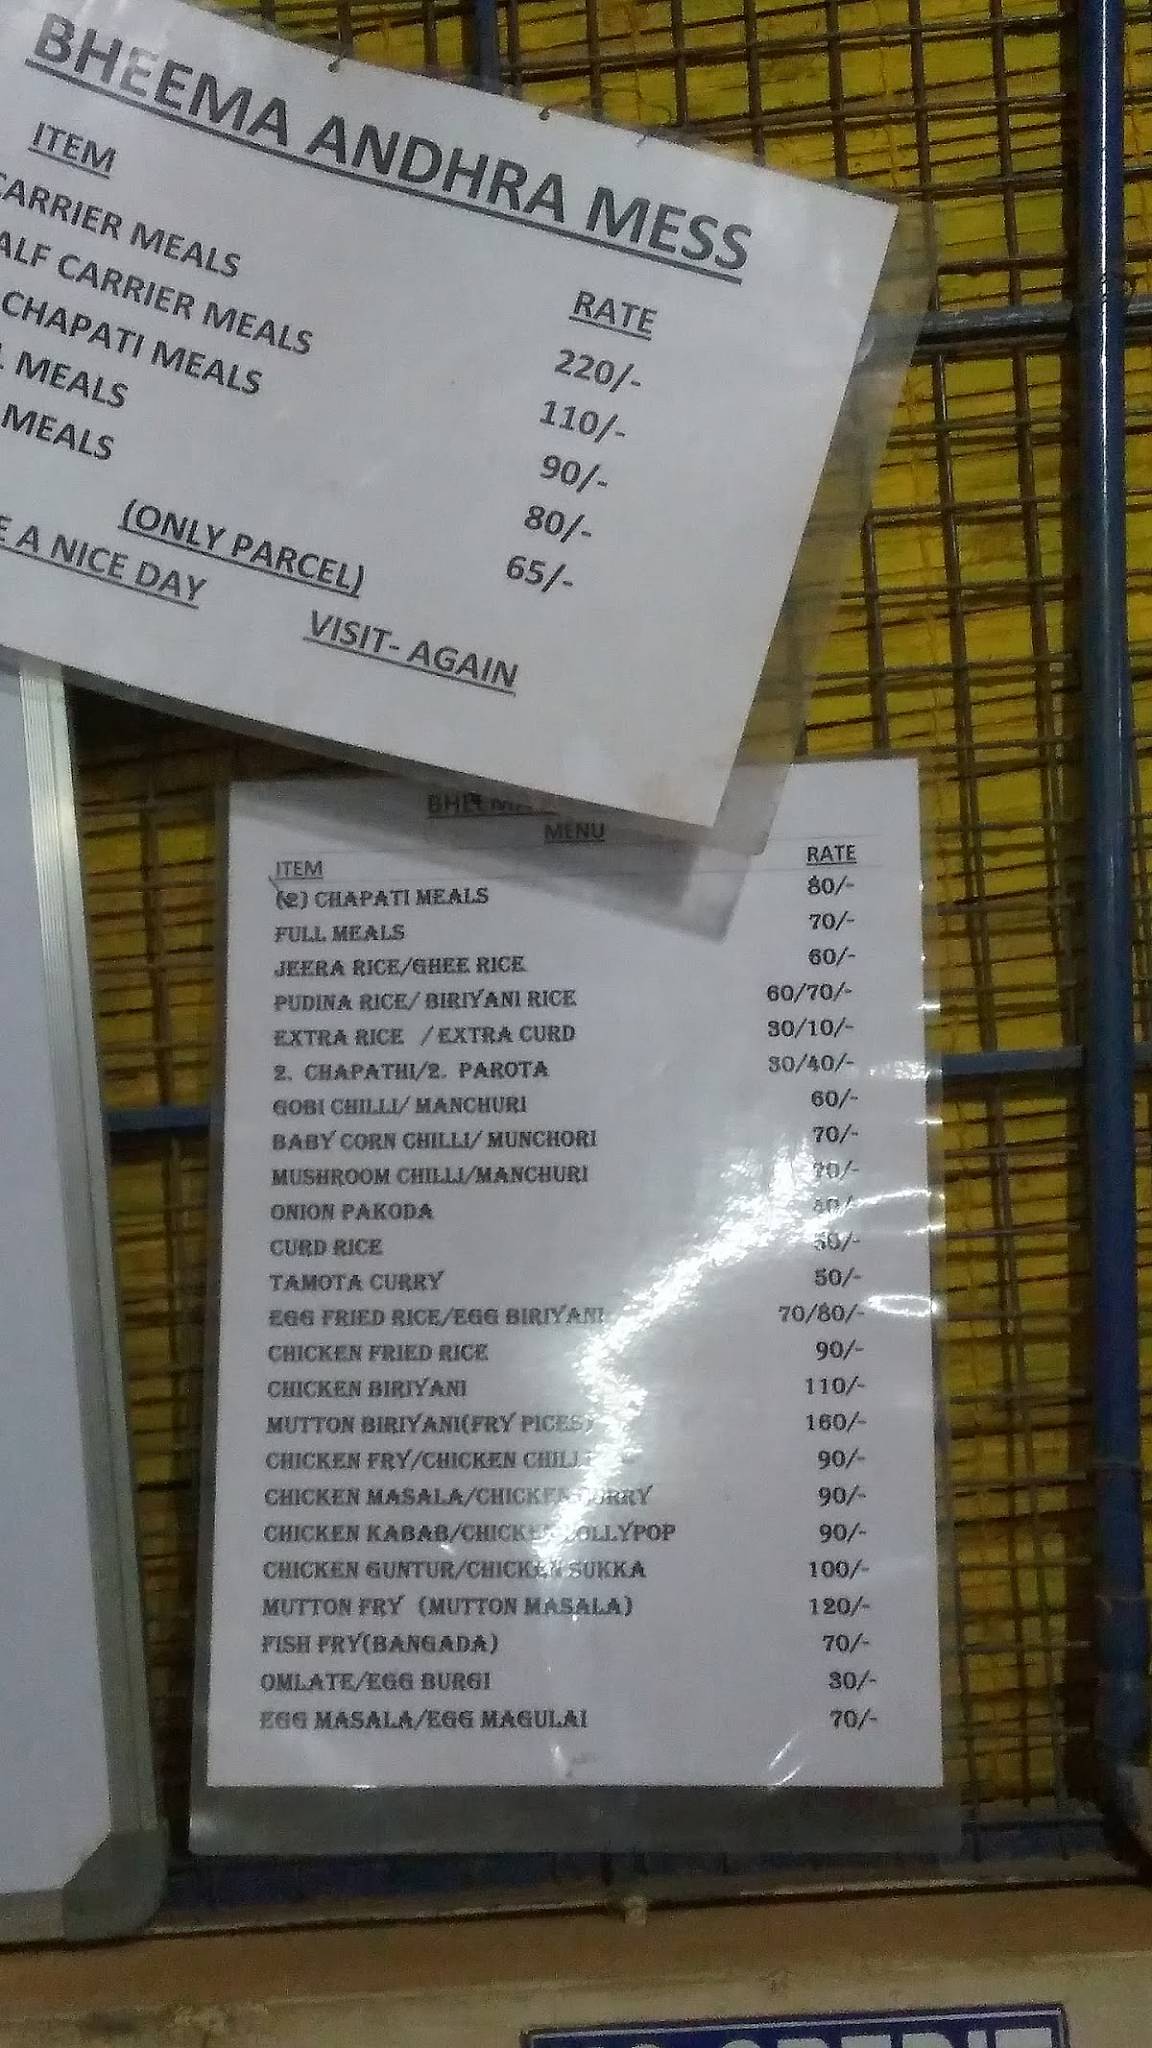 BHEEMA ANDHRA MESS
ITEM RATE
CARRIER MEALS 220/-
ALF CARRIER MEALS 110/-
CHAPATI MEALS 90/-
L MEALS 80/-
MEALS 65/-
(ONLY PARCEL)
E A NICE DAY VISIT- AGAIN
BHEEMA
MENU
ITEM RATE
(2) CHAPATI MEALS 80/-
FULL MEALS 70/-
JEERA RICE/GHEE RICE 60/-
PUDINA RICE/ BIRIYANI RICE 60/70/-
EXTRA RICE / EXTRA CURD 30/10/-
2. CHAPATHI/2. PAROTA 30/40/-
GOBI CHILLI/ MANCHURI 60/-
BABY CORN CHILLI/ MUNCHORI 70/-
MUSHROOM CHILLI/MANCHURI 70/-
ONION PAKODA 40/-
CURD RICE
TAMOTA CURRY 50/-
EGG FRIED RICE/EGG BIRIYANI 70/80/-
CHICKEN FRIED RICE 90/-
CHICKEN BIRIYANI 110/-
MUTTON BIRIYANI(FRY PICES) 160/-
CHICKEN FRY/CHICKEN CHILLI 90/-
CHICKEN MASALA/CHICKEN CURRY 90/-
CHICKEN KABAB/CHICKEN LOLLYPOP 90/-
CHICKEN GUNTUR/CHICKEN SUKKA 100/-
MUTTON FRY (MUTTON MASALA) 120/-
FISH FRY(BANGADA) 70/-
OMLATE/EGG BURGI 30/-
EGG MASALA/EGG MAGULAI 70/-
CREDIT